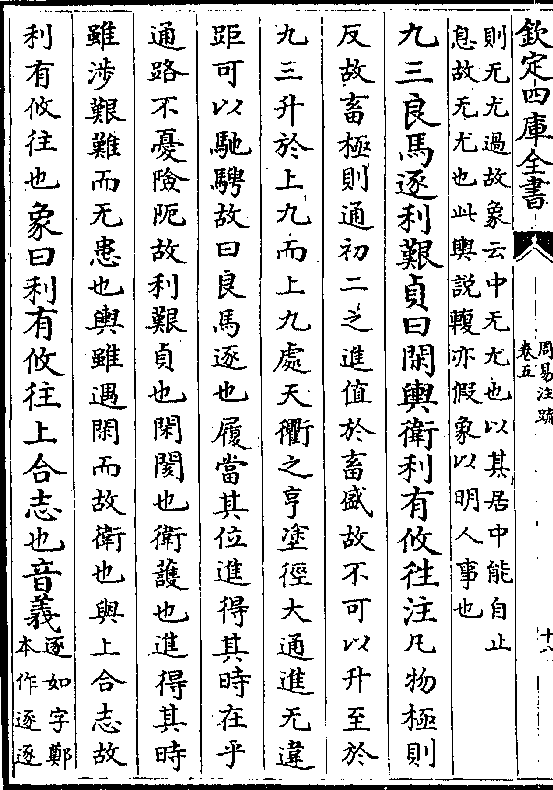 欽定四庫全書
周易注疏
卷五
則无尤過故象云中无尤也以其居中能自止
息故无尤也此輿説輹亦假象以明人事也
九三良馬逐利艱貞曰閑輿衛利有攸往注凡物極則
反故畜極則通初二之進值於畜盛故不可以升至於
九三升於上九而上九處天衢之亨塗徑大通進无違
距可以馳騁故曰良馬逐也履當其位進得其時在乎
通路不憂險阨故利艱貞也閑閡也衛護也進得其時
雖涉艱難而无患也輿雖遇閑而故衛也與上合志故
利有攸往也象曰利有攸往上合志也音義
逐如字鄭
本作逐逐